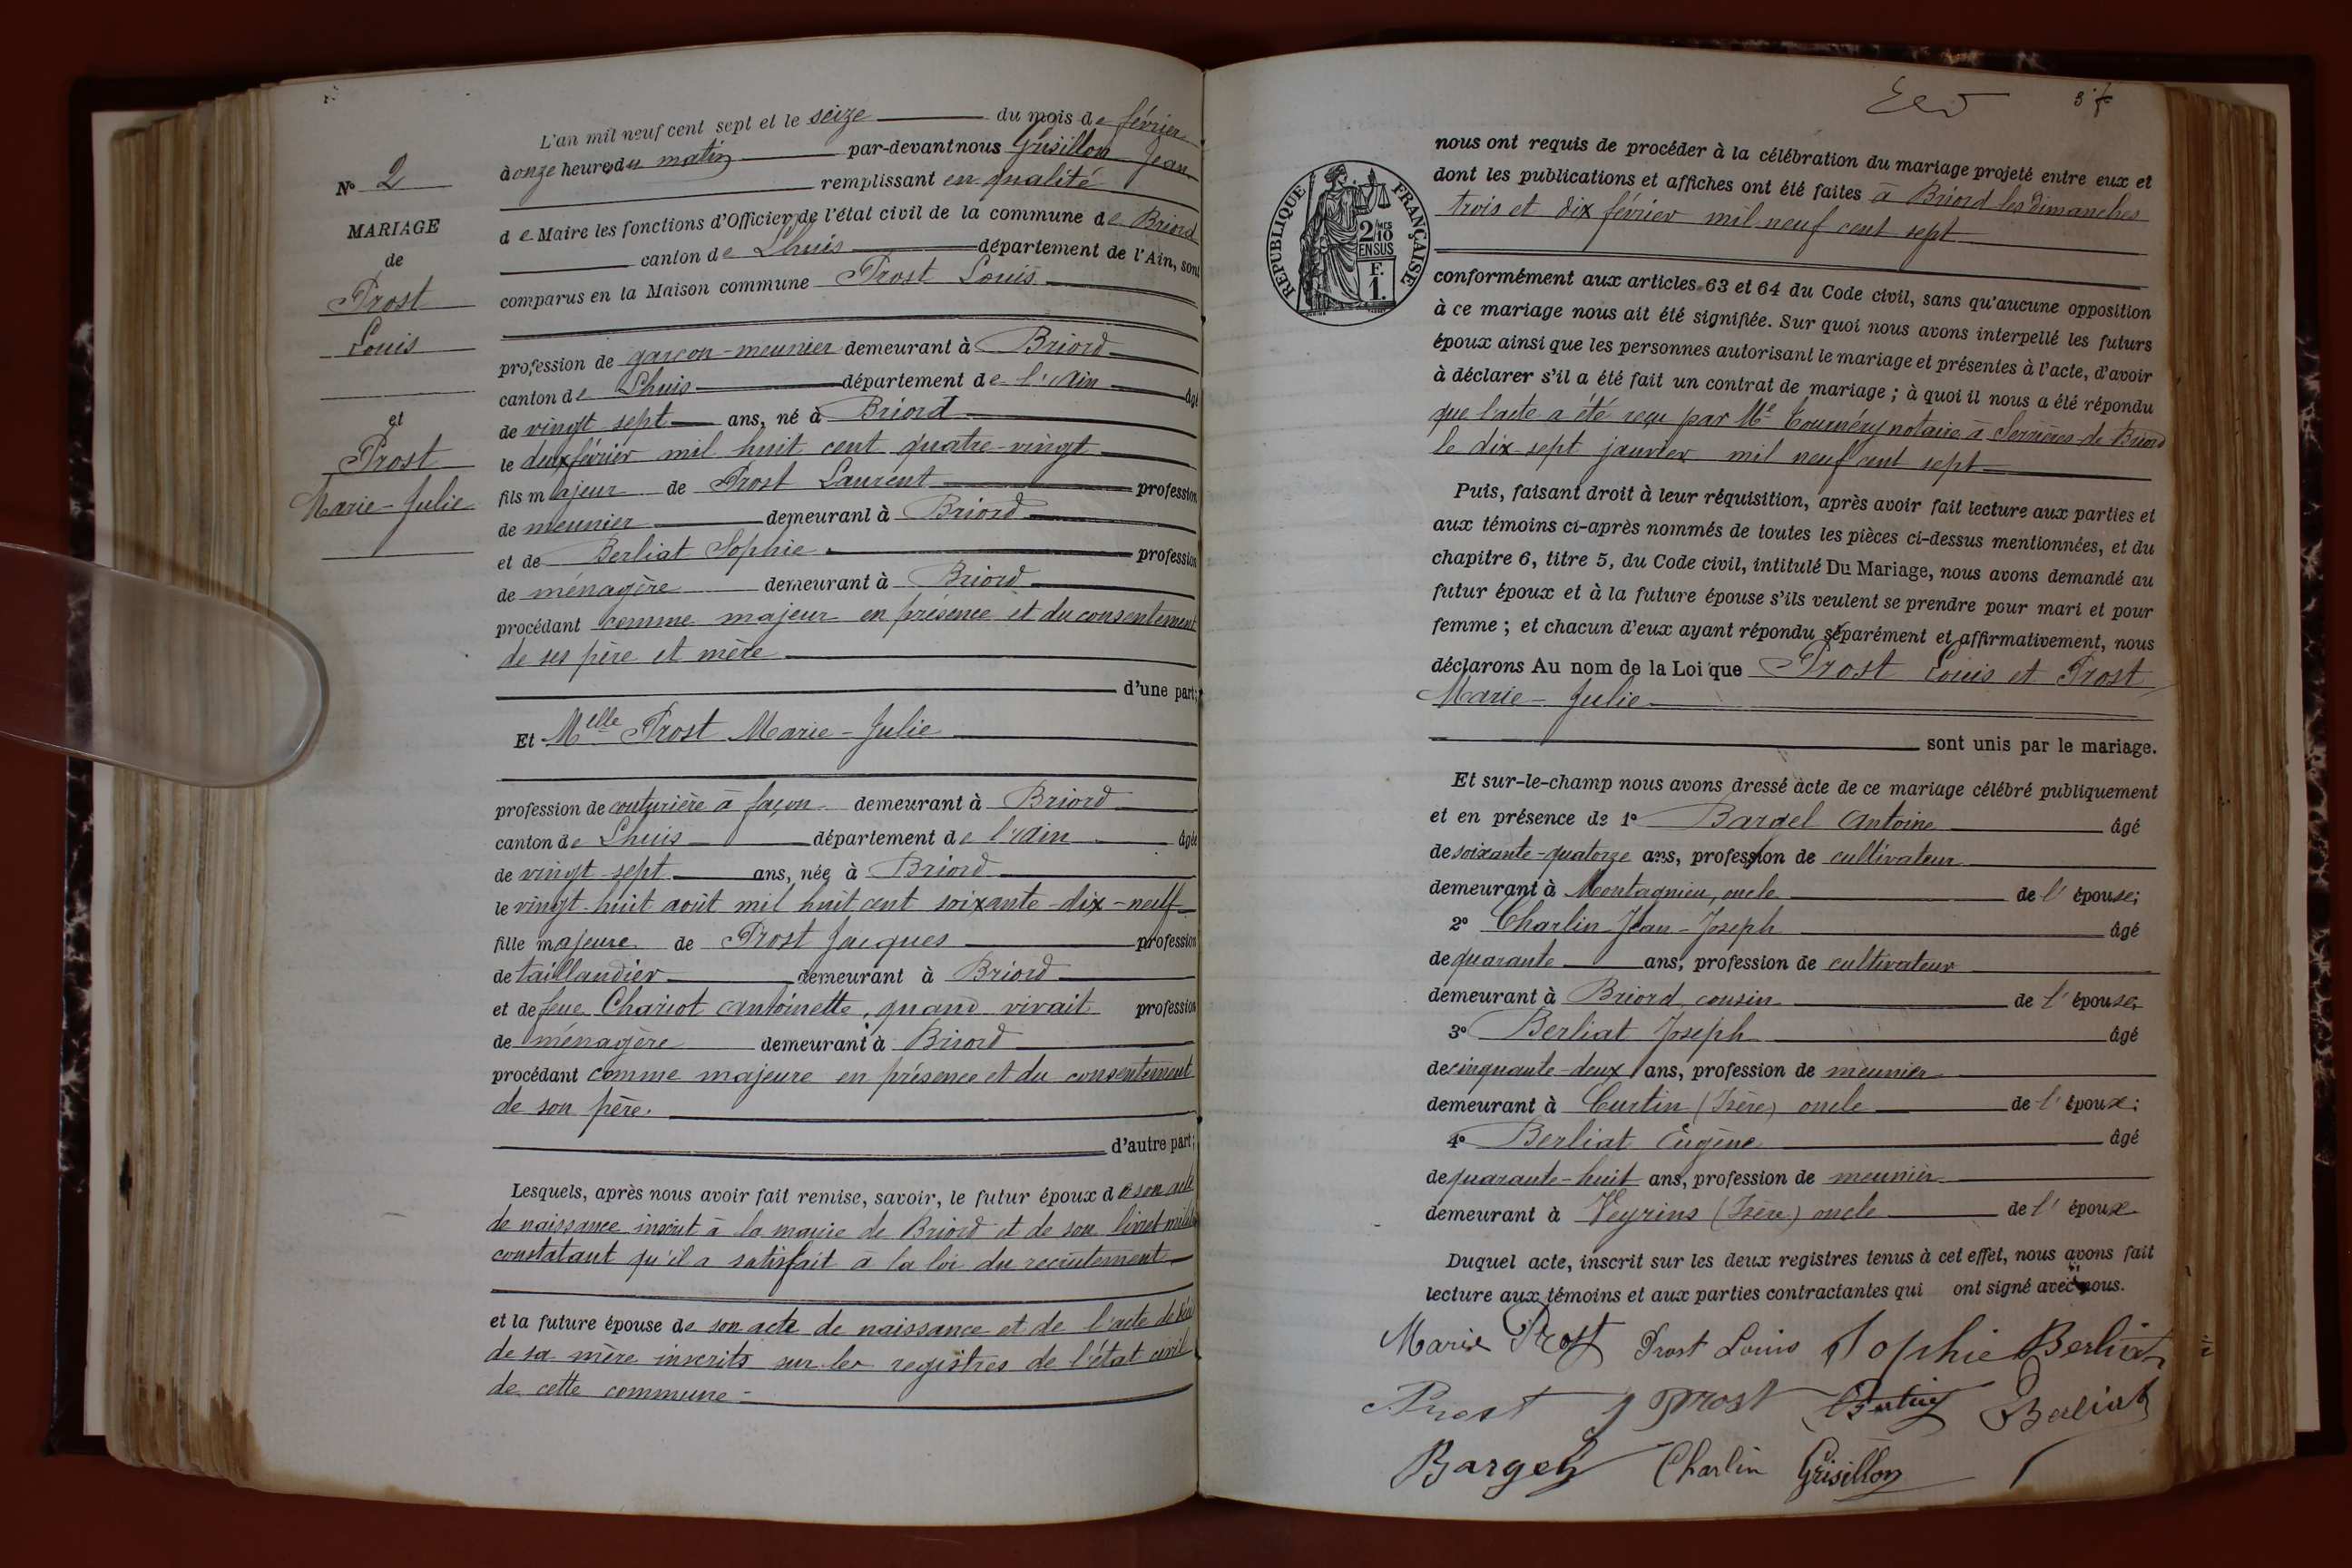 L'an mil neuf cent sept et le seize du mois de février
à onze heures du matin par-devant nous Grisillon Jean
remplissant en qualité
de Maire les fonctions d'Officier de l'état civil de la commune de Briord
canton de Lhuis département de l'Ain, sont
comparus en la Maison commune Prost Louis
profession de garçon-meunier demeurant à Briord
canton de Lhuis département de l'Ain âgé
de vingt sept ans, né à Briord
le deux février mil huit cent quatre-vingt
fils majeur de Prost Laurent profession
de meunier demeurant à Briord
et de Berliat Sophie profession
de ménagère demeurant à Briord
procédant comme majeur en présence et du consentement
de ses père et mère
d'une part;
Et Melle Prost Marie-Julie
profession de couturière à façon demeurant à Briord
canton de Lhuis département de l'Ain âgée
de vingt-sept ans, née à Briord
le vingt-huit août mil huit cent soixante-dix-neuf
fille majeure de Prost Jacques profession
de taillandier demeurant à Briord
et de feue Chariot Antoinette, quand vivait profession
de ménagère demeurant à Briord
procédant comme majeure en présence et du consentement
de son père.
d'autre part;
Lesquels, après nous avoir fait remise, savoir, le futur époux de son acte
de naissance inscrit à la mairie de Briord et de son livret
constatant qu'il a satisfait à la loi du recrutement
et la future épouse de son acte de naissance et de l'acte de
de sa mère inscrits sur les registres de l'état civil
de cette commune -
No 2
MARIAGE
de
Prost
Louis
et
Prost
Marie-Julie
nous ont requis de procéder à la célébration du mariage projeté entre eux et
dont les publications et affiches ont été faites à Briord les dimanches
trois et dix février mil neuf cent sept
conformément aux articles 63 et 64 du Code civil, sans qu'aucune opposition
à ce mariage nous ait été signifiée. Sur quoi nous avons interpellé les futurs
époux ainsi que les personnes autorisant le mariage et présentes à l'acte, d'avoir
à déclarer s'il a été fait un contrat de mariage ; à quoi il nous a été répondu
que l'acte a été reçu par Me Tournéry notaire à Serrières-de-Briord
le dix-sept janvier mil neuf cent sept
Puis, faisant droit à leur réquisition, après avoir fait lecture aux parties et
aux témoins ci-après nommés de toutes les pièces ci-dessus mentionnées, et du
chapitre 6, titre 5, du Code civil, intitulé Du Mariage, nous avons demandé au
futur époux et à la future épouse s'ils veulent se prendre pour mari et pour
femme ; et chacun d'eux ayant répondu séparément et affirmativement, nous
déclarons Au nom de la Loi que Prost Louis et Prost
Marie-Julie
sont unis par le mariage.
Et sur-le-champ nous avons dressé acte de ce mariage célébré publiquement
et en présence de 1º Bargel Antoine âgé
de soixante-quatorze ans, profession de cultivateur
demeurant à Montagnieu, oncle de l'épouse;
2º Charlin Jean-Joseph âgé
de quarante ans, profession de cultivateur
demeurant à Briord, cousin de l'épouse;
3º Berliat Joseph âgé
de cinquante-deux ans, profession de meunier
demeurant à Curtin (Isère) oncle de l'époux;
4º Berliat Eugène âgé
de quarante-huit ans, profession de meunier
demeurant à Veyrins (Isère) oncle de l'époux
Duquel acte, inscrit sur les deux registres tenus à cet effet, nous avons fait
lecture aux témoins et aux parties contractantes qui ont signé avec nous.
Marie Prost Prost Louis Sophie Berliat
Prost J Prost Berliat
Bargel Charlin Grisillon
RÉPUBLIQUE FRANÇAISE
2/10 MES
EN SUS
F.
1.